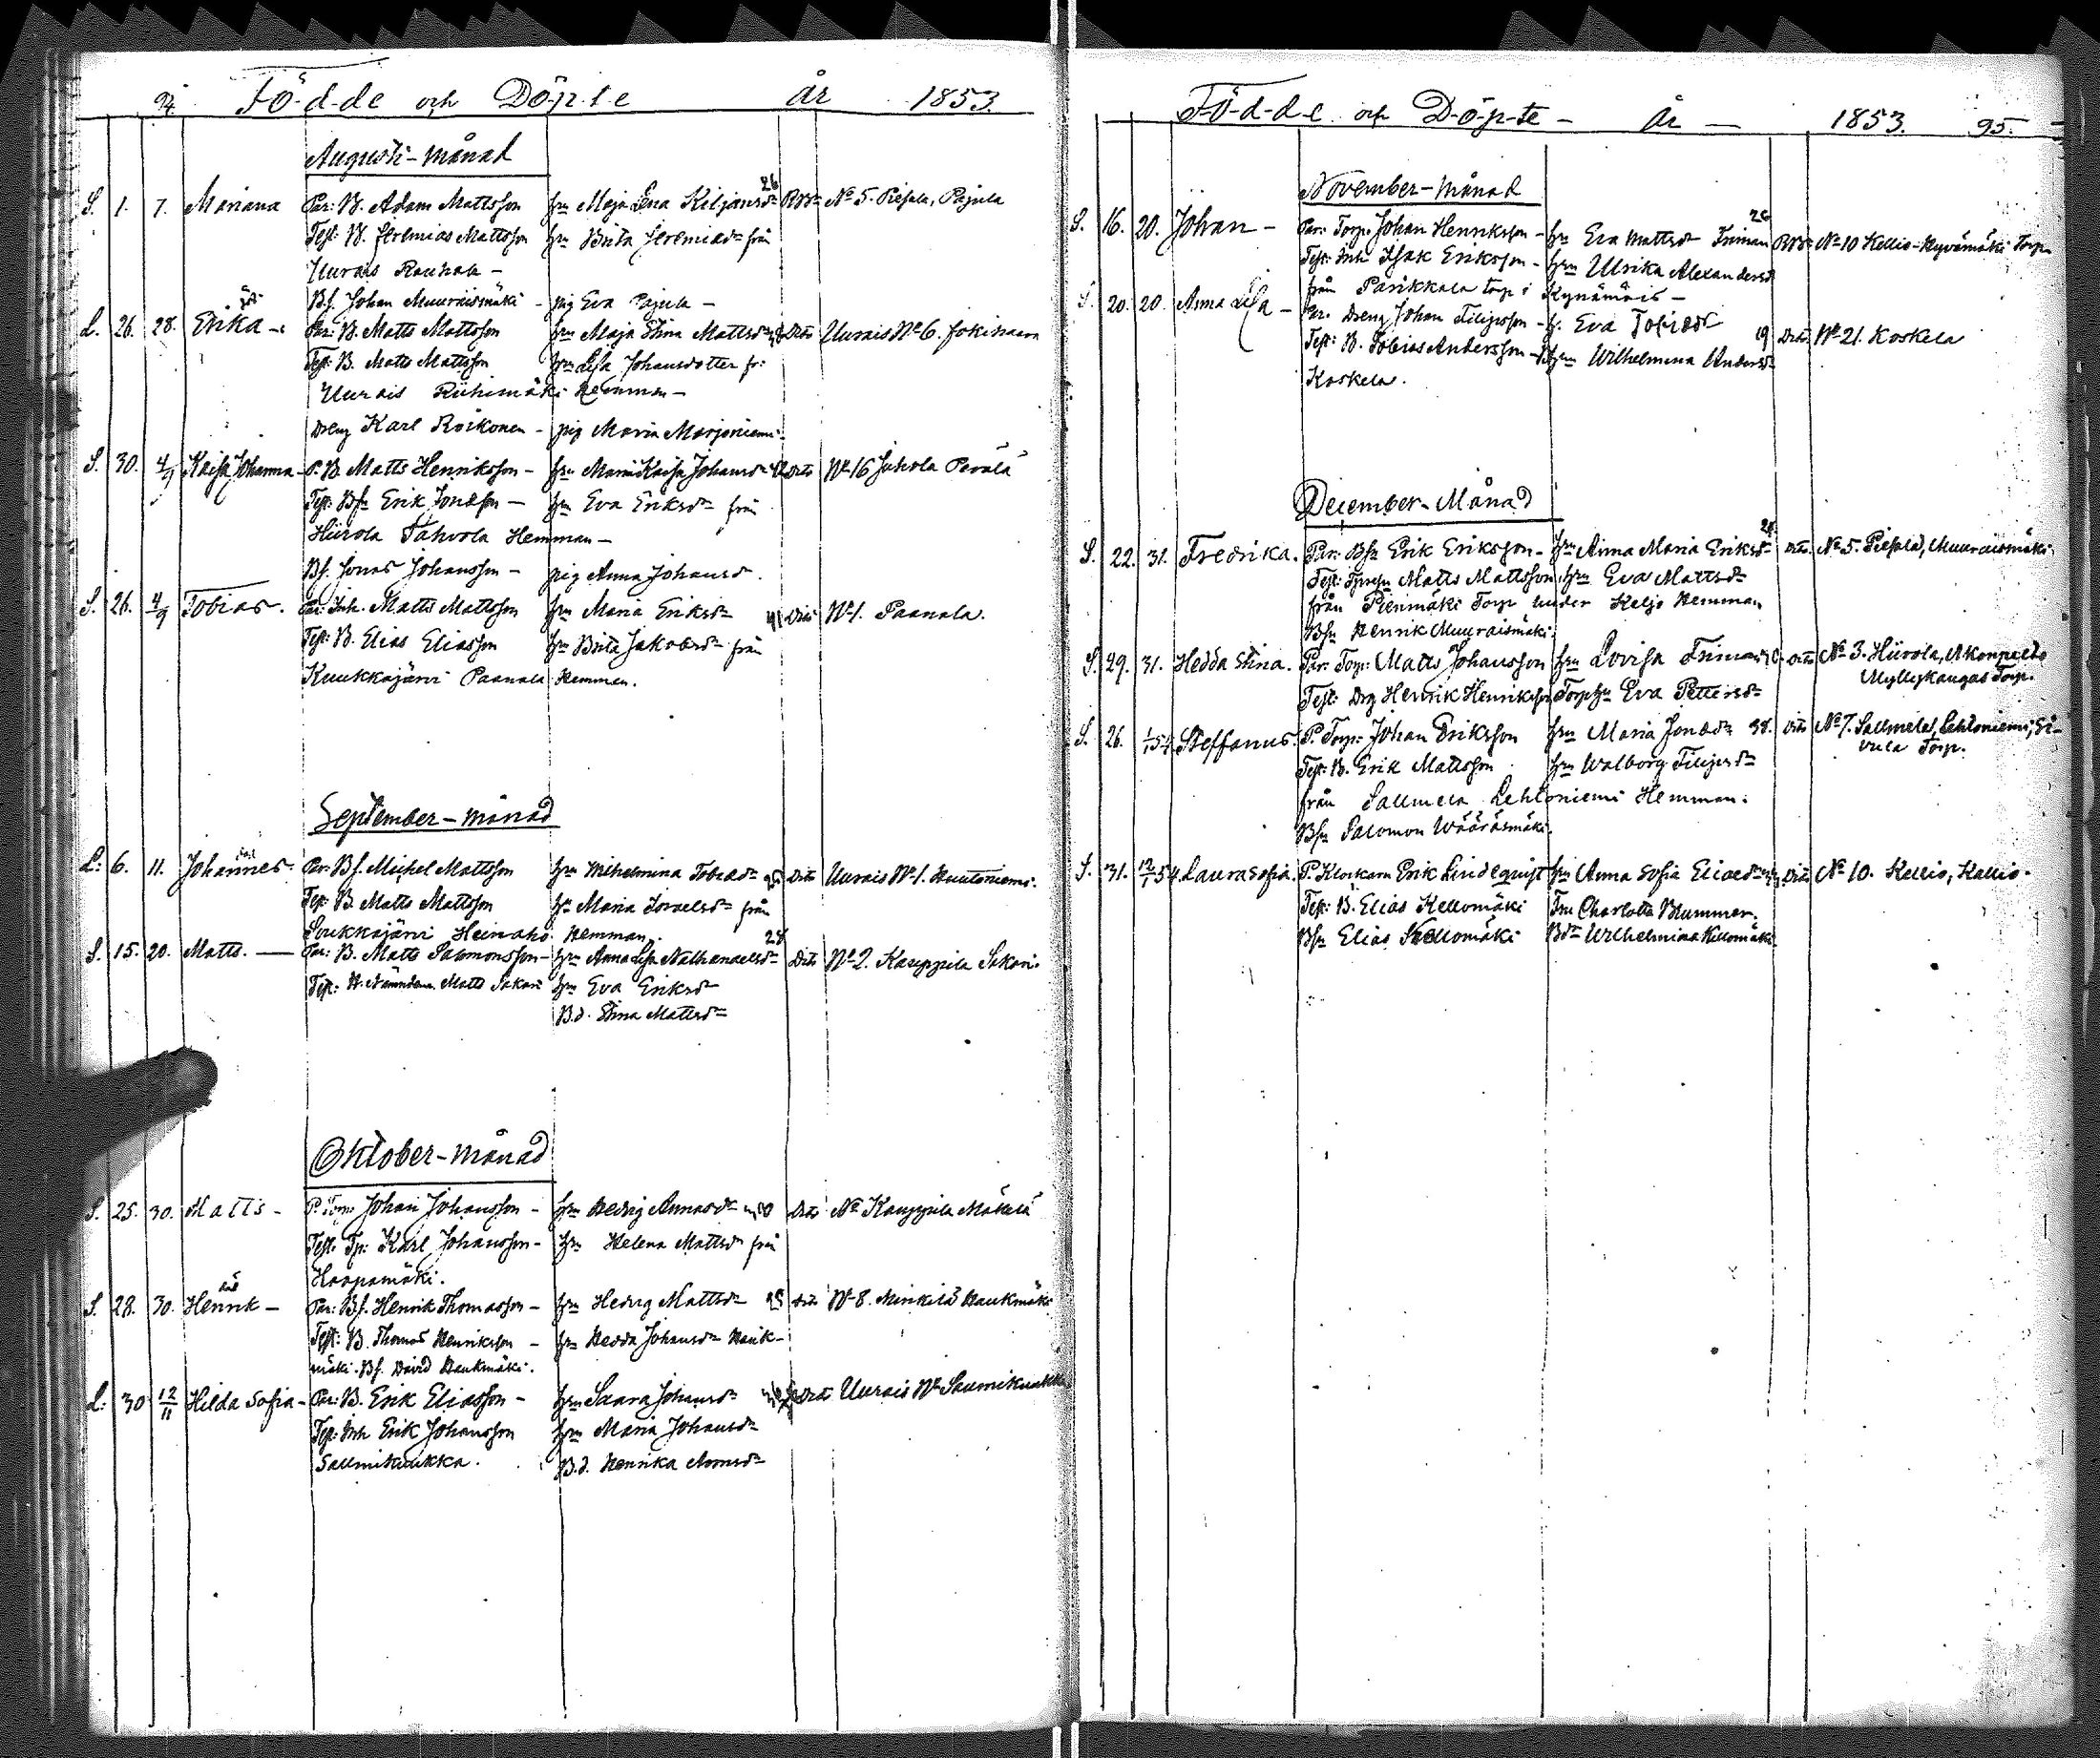 94. Född-de och Döpte år 1853.
Augusti-månad
S. 1. 7. Mariana Par: B. Adam Mattsson hru Maja Lena Kiljansdr 26 No 5. Piesala, Pajula
Test: B. Jeremias Mattsson hru Brita Jeremiadr från
Uurais Rauhala -
Bs. Johan Muuraismäki - pig Eva Pajula -
L. 26. 28. Erika - Par: B. Matts Mattsson hru Maja Stina Mattsdr Dito Uurais No 6. Jokihaara
Test: B. Matts Mattsson hru Lisa Johansdotter fr:
Uurais Riihimäki Hemman -
Dreng Karl Roikonen - pig Maria Marjoniemi
S. 30. 4/9 Kaisa Johanna - P. B. Matts Henriksson - hru Maria Kaisa Johansdr 42 Dito No 16 Juhola Perälä
Test: Bsn Erik Jonasson - hru Eva Eriksdr från
Hiirola Tahvola Hemman -
Bs. Jonas Johansson - pig Anna Johansdr.
S. 26. 4/9 Tobias. Par: Inh. Matts Mattsson hru Maria Eriksdr 41 Dito No 1. Paanala.
Test: B. Elias Eliasson hru Brita Jakobsdr från
Kuukkajärvi Paanala Hemman.
September-månad
L. 6. 11. Johannes - Par: Bs. Michel Mattsson hru Wilhelmina Tobiasdr Dito Uurais No 1. Huutoniemi.
Test: B. Matts Mattsson hru Maria Israelsdr från
Soukkajärvi Heinaho Hemman.
S. 15. 20. Matts. - Par: B. Matts Salomonsson - hru Anna Lisa Nathanaelsdr 24 Dito No 2. Kauppila Sakari
Test: H. Nämndem. Matts Sakari hru Eva Eriksdr
B.d. Stina Mattsdr
Oktober-månad
S. 25. 30. Matts - P. Torp: Johan Johansson - hru Hedvig Annasdr Dito No Kauppila Mäkelä
Test: Tp: Karl Johansson - hru Helena Mattsdr från
Haapamäki.
S. 28. 30. Henrik - Par: Bs. Henrik Thomasson - hru Hedvig Mattsdr Dito No 8. Minkilä Haukmäki
Test: B. Thomas Henriksson - hru Hedda Johansdr Hauk-
mäki. Bs. David Haukmäki.
L. 30 12/11 Hilda Sofia - Par: B. Erik Eliasson - hru Saara Johansdr Dito Uurais No Saumikuukka
Test: Inh Erik Johansson hru Maria Johansdr
Salmikuukka. B.d. Henrika
Född-d-e och Döp-te - År - 1853. 95.
November-månad
S. 16. 20. Johan - Par: Torp: Johan Henriksson - hru Eva Mattsdr Friman 26 No 10 Kellio-Hyvämäki Torp
Test: Inh Isak Eriksson - hru Ulrika Alexandersd
från Parikkala torp i Kynämöis -
S. 20. 20. Anna Lisa - Par. Dreng Johan Filipsson - h. Eva Tobiasdr 19 Dito No 21. Koskela
Test: B. Tobias Andersson - hru Wilhelmina Andersdr
Koskela.
December-Månad
S. 22. 31. Fredrika. Par: Bsn Erik Eriksson - hru Anna Maria Eriksdr Dito No 5. Piesala, Muuraismäki
Test: Matts Mattsson, hru Eva Mattsdr
från Pienmäki Torp under Keljo Hemman
Bsn Henrik Muuraismäki.
S. 29. 31. Hedda Stina. Par: Torp: Matts Johansson hru Lovisa Friman Dito No 3. Hiirola, Akonpelto
Myllykangas Torp.
Test: Drg Henrik Henriksson Torphru Eva Pettersdr
S. 26. 1/1 54 Steffanus. P. Torp: Johan Eriksson hru Maria Jonasdr 38. Dito No 7. Sallmela, Lehtoniemi,
Torp.
Test: B. Erik Mattsson hru Walborg Filipsdr
från Sallmela Lehtoniemi Hemman.
Bsn Salomon Wääräsmäki.
S. 31. 12/1 54 Laura Sofia. P. Klockarn Erik Lindequist hru Anna Sofia Eliasdr Dito No 10. Kellio, Kallio.
Test: B. Elias Kellomäki Fru Charlotta Blummer.
Bsn Elias Kellomäki Bdr Wilhelmina Kellomäki